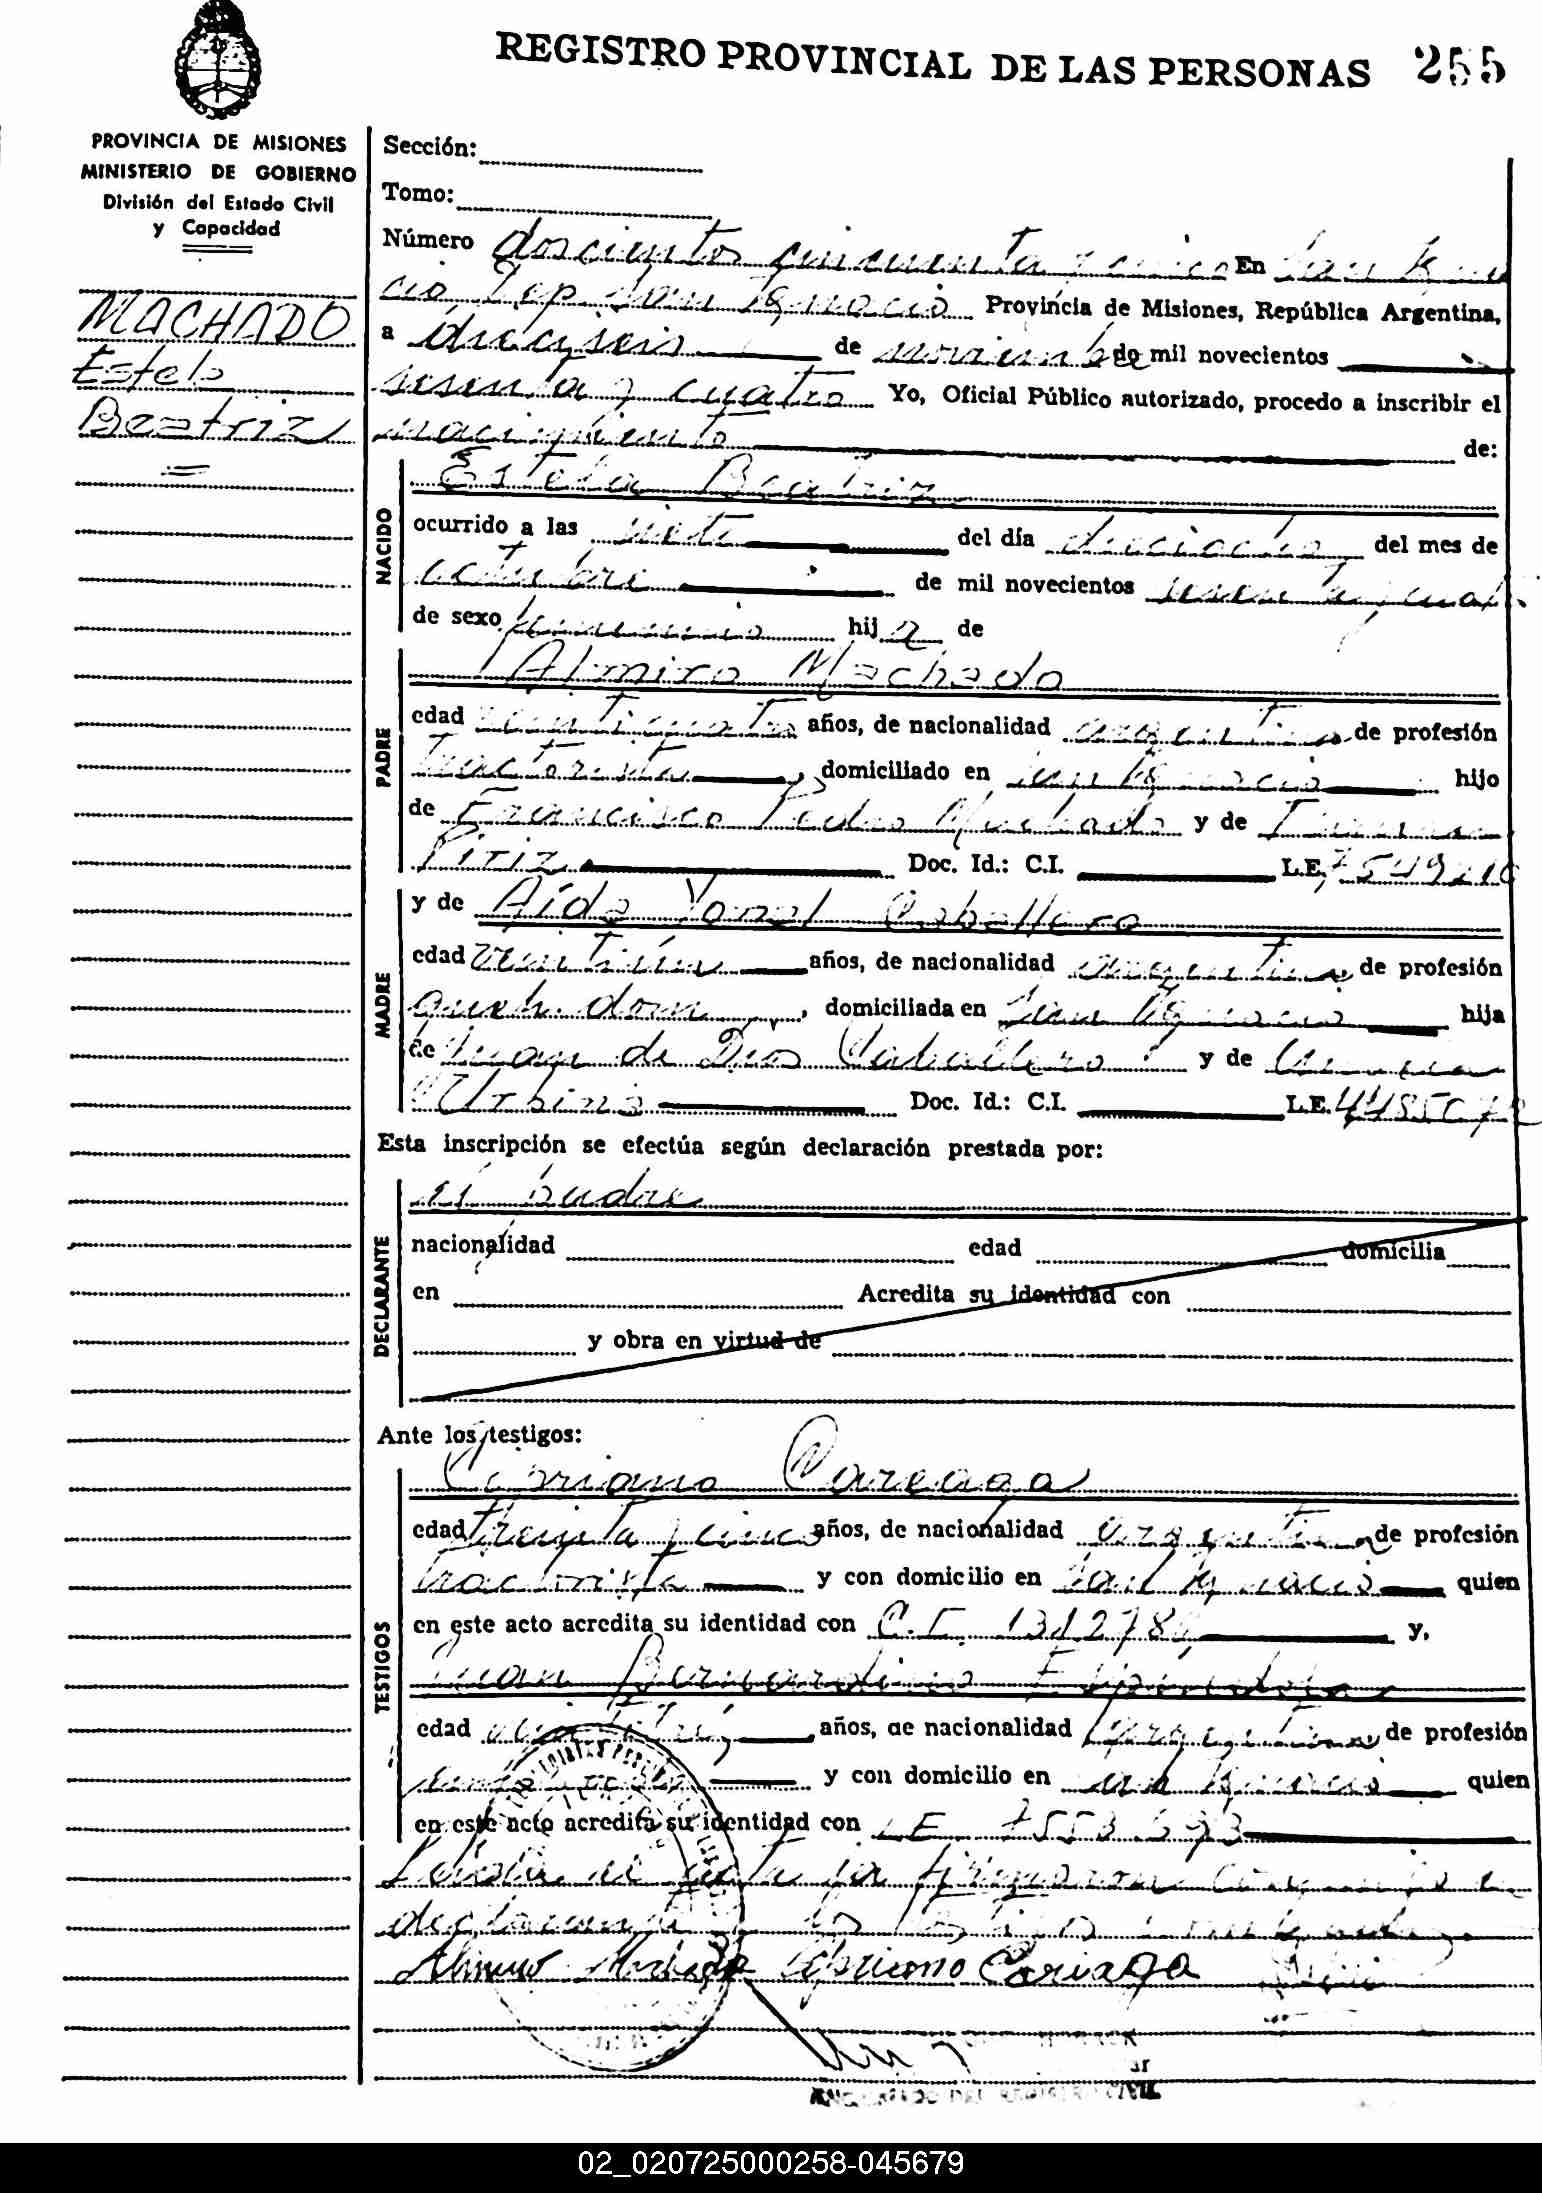 REGISTRO PROVINCIAL DE LAS PERSONAS 255
PROVINCIA DE MISIONES
MINISTERIO DE GOBIERNO
División del Estado Civil
y Capacidad
MACHADO
Estela
Beatriz
Sección:
Tomo:
Número doscientos cincuenta y cinco En San Igna
cio Dep San Ignacio Provincia de Misiones, República Argentina,
a dieciseis de noviembre de mil novecientos
sesenta y cuatro Yo, Oficial Público autorizado, procedo a inscribir el
nacimiento de:
NACIDO
Estela Beatriz
ocurrido a las siete del día dieciocho del mes de
octubre de mil novecientos sesenta y cuatro
de sexo femenino hija de
PADRE
Almiro Machado
edad años, de nacionalidad argentina de profesión
tractorista, domiciliado en San Ignacio hijo
de Francisco Pedro Machado y de
Piriz Doc. Id.: C.I. L.E. 7549216
MADRE
y de Aída Caballero
edad veintiún años, de nacionalidad argentina de profesión
queh. dom., domiciliada en San Ignacio hija
de Juan de Dios Caballero y de
Urbina Doc. Id.: C.I. L.E.
Esta inscripción se efectúa según declaración prestada por:
DECLARANTE
el padre
nacionalidad edad domicilia
en Acredita su identidad con
y obra en virtud de
Ante los testigos:
TESTIGOS
Cipriano Careaga
edad treinta y cinco años, de nacionalidad argentina de profesión
tractorista y con domicilio en San Ignacio quien
en este acto acredita su identidad con C.I. y,
Juan Bernardino
edad años, de nacionalidad argentina de profesión
y con domicilio en San Ignacio quien
en este acto acredita su identidad con L.E. 7553693
Leída el acta la firmaron conmigo el
declarante y los testigos
Almiro Machado Cipriano Cariaga
02_020725000258-045679